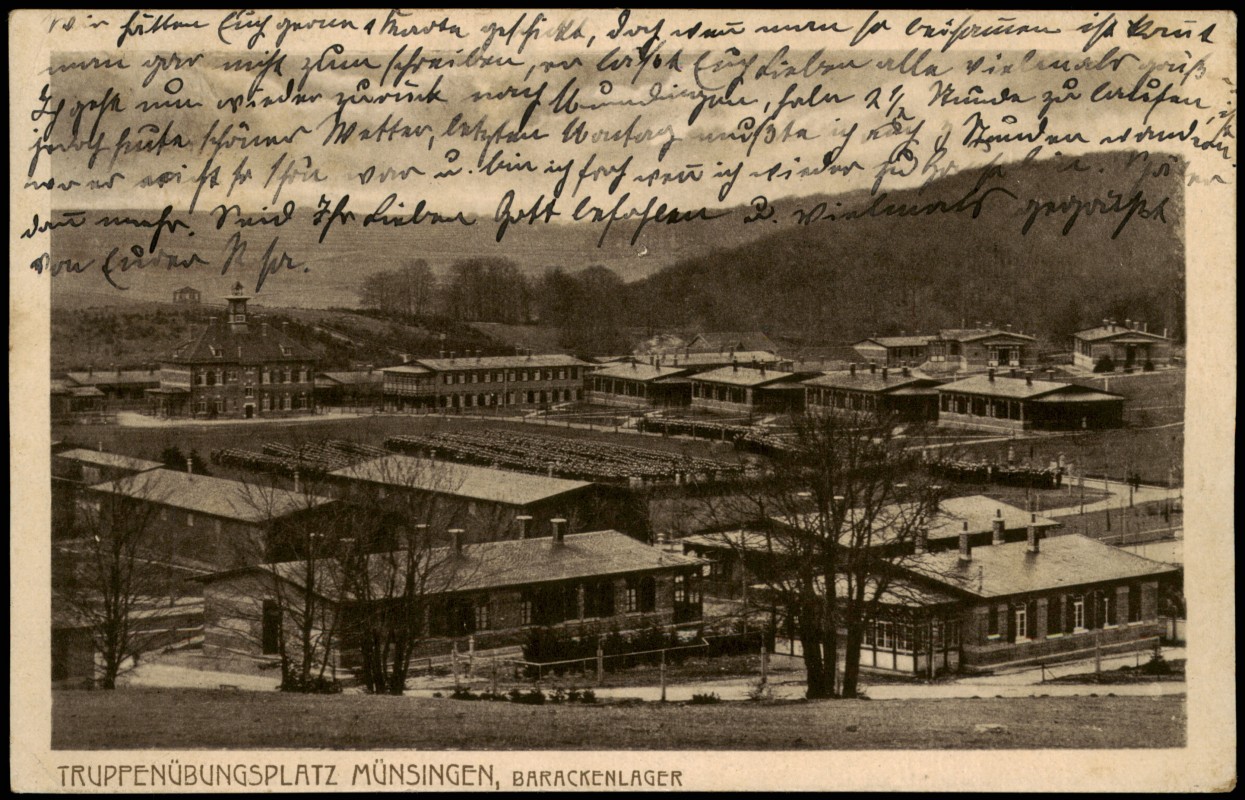 Wir hätten Euch gerne 1 Karte geschickt, doch weñ man so beisam̄en ist kom̄t
man gar nicht zum schreiben, er läßt Euch Lieben alle vielmals grüß
Ich geh nun wieder zurück nach Mundingen, habe 2½ Stunde zu laufen, ist
jedoch heute schönes Wetter, letzten Montag mußte ich auch Stunden wandern
wo es nicht so schön war u. bin ich froh weñ ich wieder zu Hause bin.
dañ mehr. Seid Ihr Lieben Gott befohlen u. vielmals gegrüßt
von Eurer
TRUPPENÜBUNGSPLATZ MÜNSINGEN, BARACKENLAGER